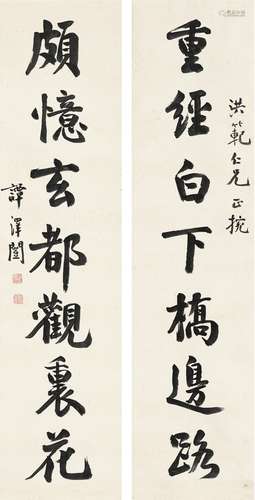 洪範仁兄正挽
重經白下橋邊路
頗憶玄都觀裏花
譚澤闓